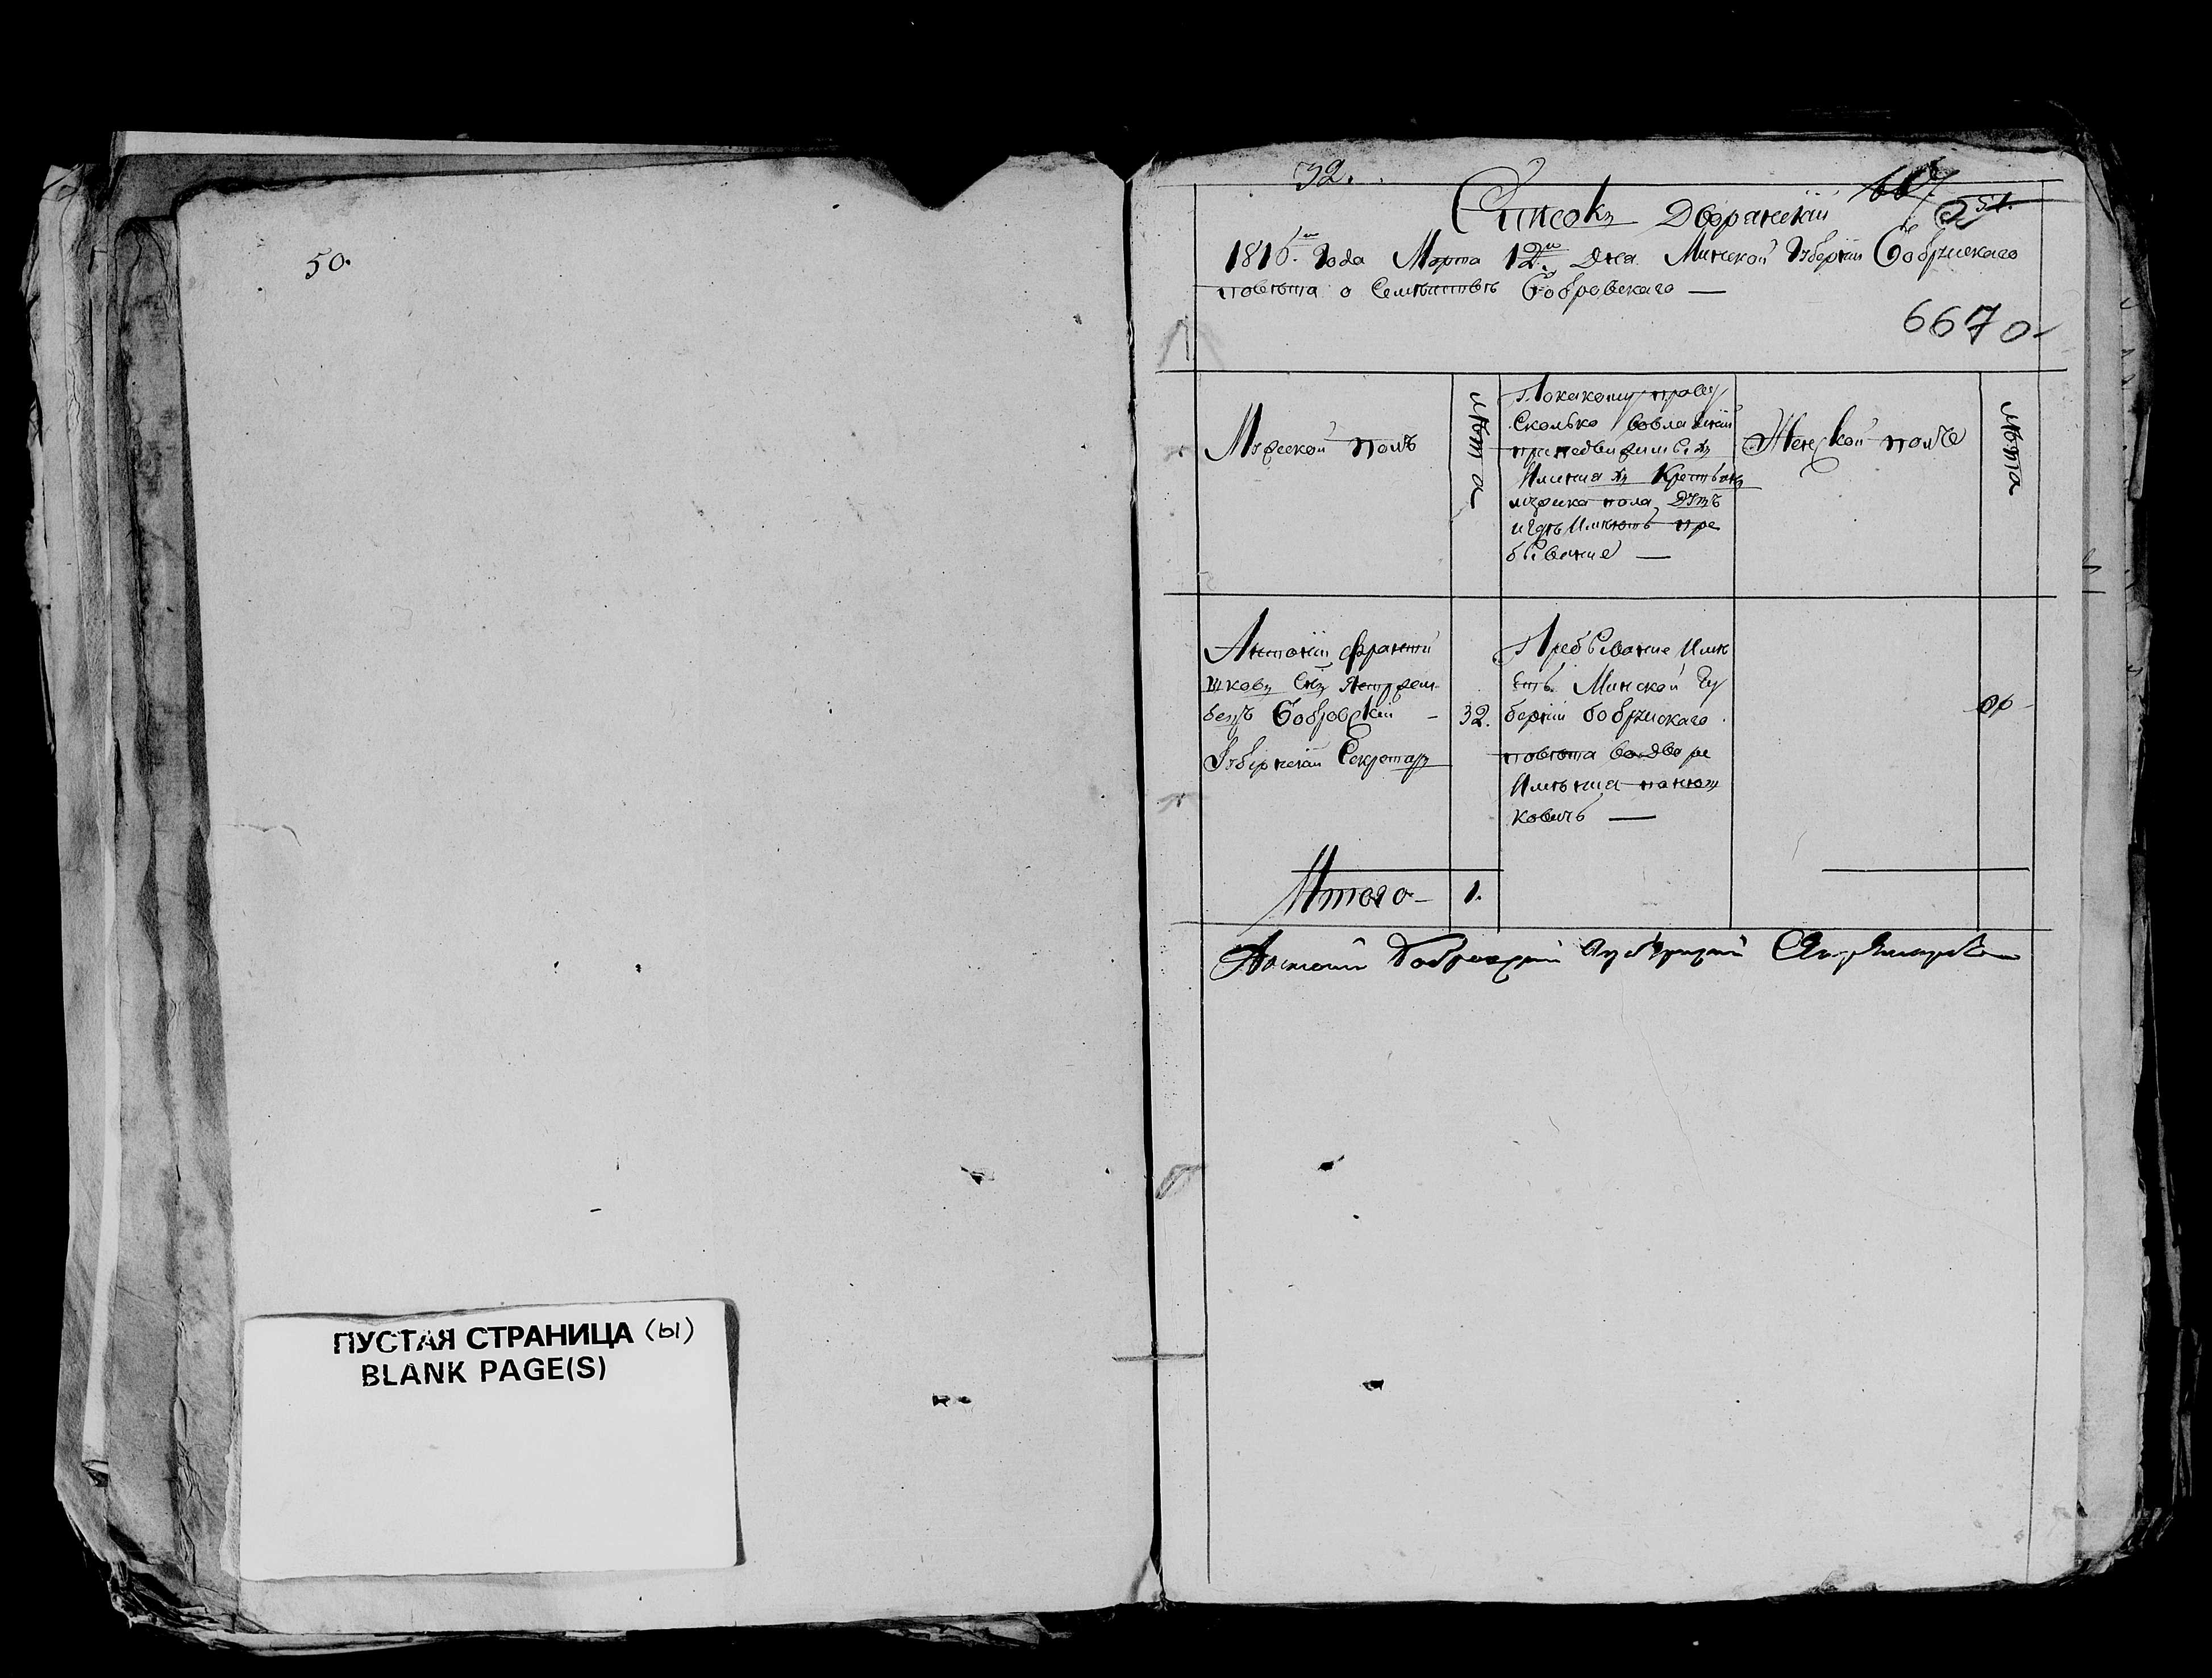 50.
ПУСТАЯ СТРАНИЦА (ы)
BLANK PAGE(S)
32.
667
51.
Списокъ Дворянскій
1816го Года Марта 12го Дня Минской Губерніи Бобруискаго
повѣта о Семѣйствѣ Бобровскаго —
6670
Мужеской полъ
лѣта
По какому праву
Сколько во владѣніи
Имения Крестьянъ
мужска пола душъ
и гдѣ Имѣютъ пре
бывание —
Женской полъ
лѣта
Антоній Франци
шковъ Сынъ Ястржем
бецъ Бобровскій —
Губернскій Секретарь
32.
Пребывание Имѣ
етъ Минской Гу
берніи Бобруискаго
повѣта во дворе
Имѣния
ковичъ —
Итого —
1.
Антоній Бобровскій Губернскій Секретарь